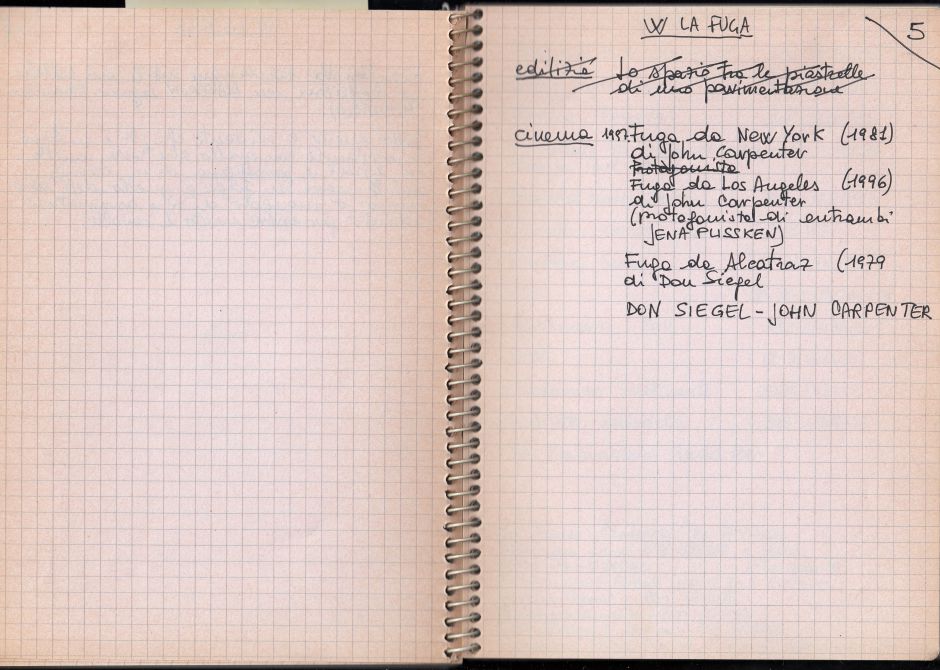 W LA FUGA
5
edilizia lo spazio tra le piastrelle
di una pavimentazione
cinema 1997: Fuga da New York (1981)
di John Carpenter
Protagonista
Fuga da Los Angeles (1996)
di John Carpenter
(protagonista di entrambi
JENA PLISSKEN)
Fuga da Alcatraz (1979
di Don Siegel
DON SIEGEL - JOHN CARPENTER